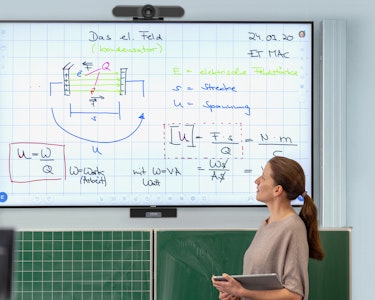 Das el. Feld
(Kondensator)
24.01.20
ET MAC
F Q
e
F
s
u
E = elektrische Feldstärke
s = Strecke
U = Spannung
[U] = F · s / Q = N · m / C
= Ws / As
U = W / Q
W = Work
(Arbeit)
mit W = VA
Watt